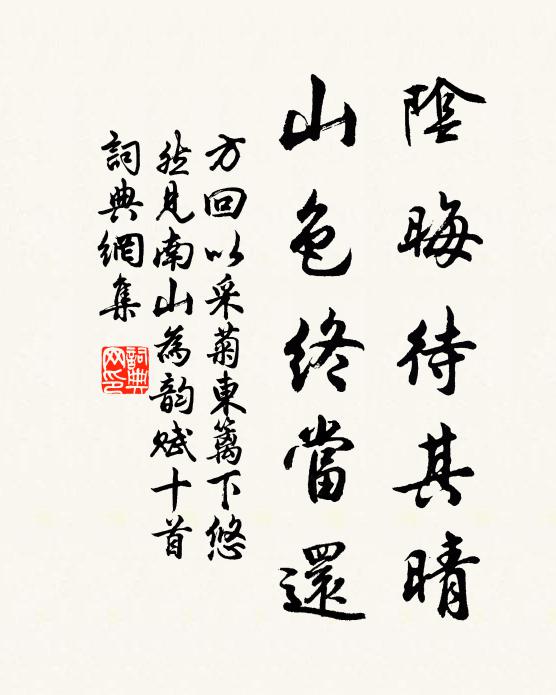 陰晦待其晴
山色終當還
方回以采菊東籬下悠
然見南山為韵賦十首
詞典網集
詞典网印